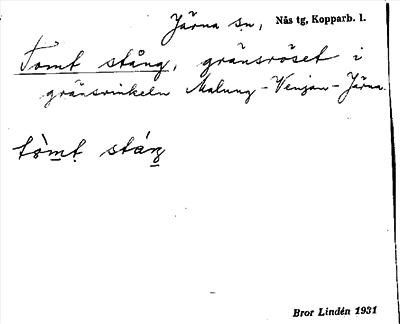 Järna sn, Nås tg, Kopparb. l.
Tomt stång, gränsröset i
gränsvinkeln Malung-Venjan-Järna.
tòmt stáŋ
Bror Lindén 1931